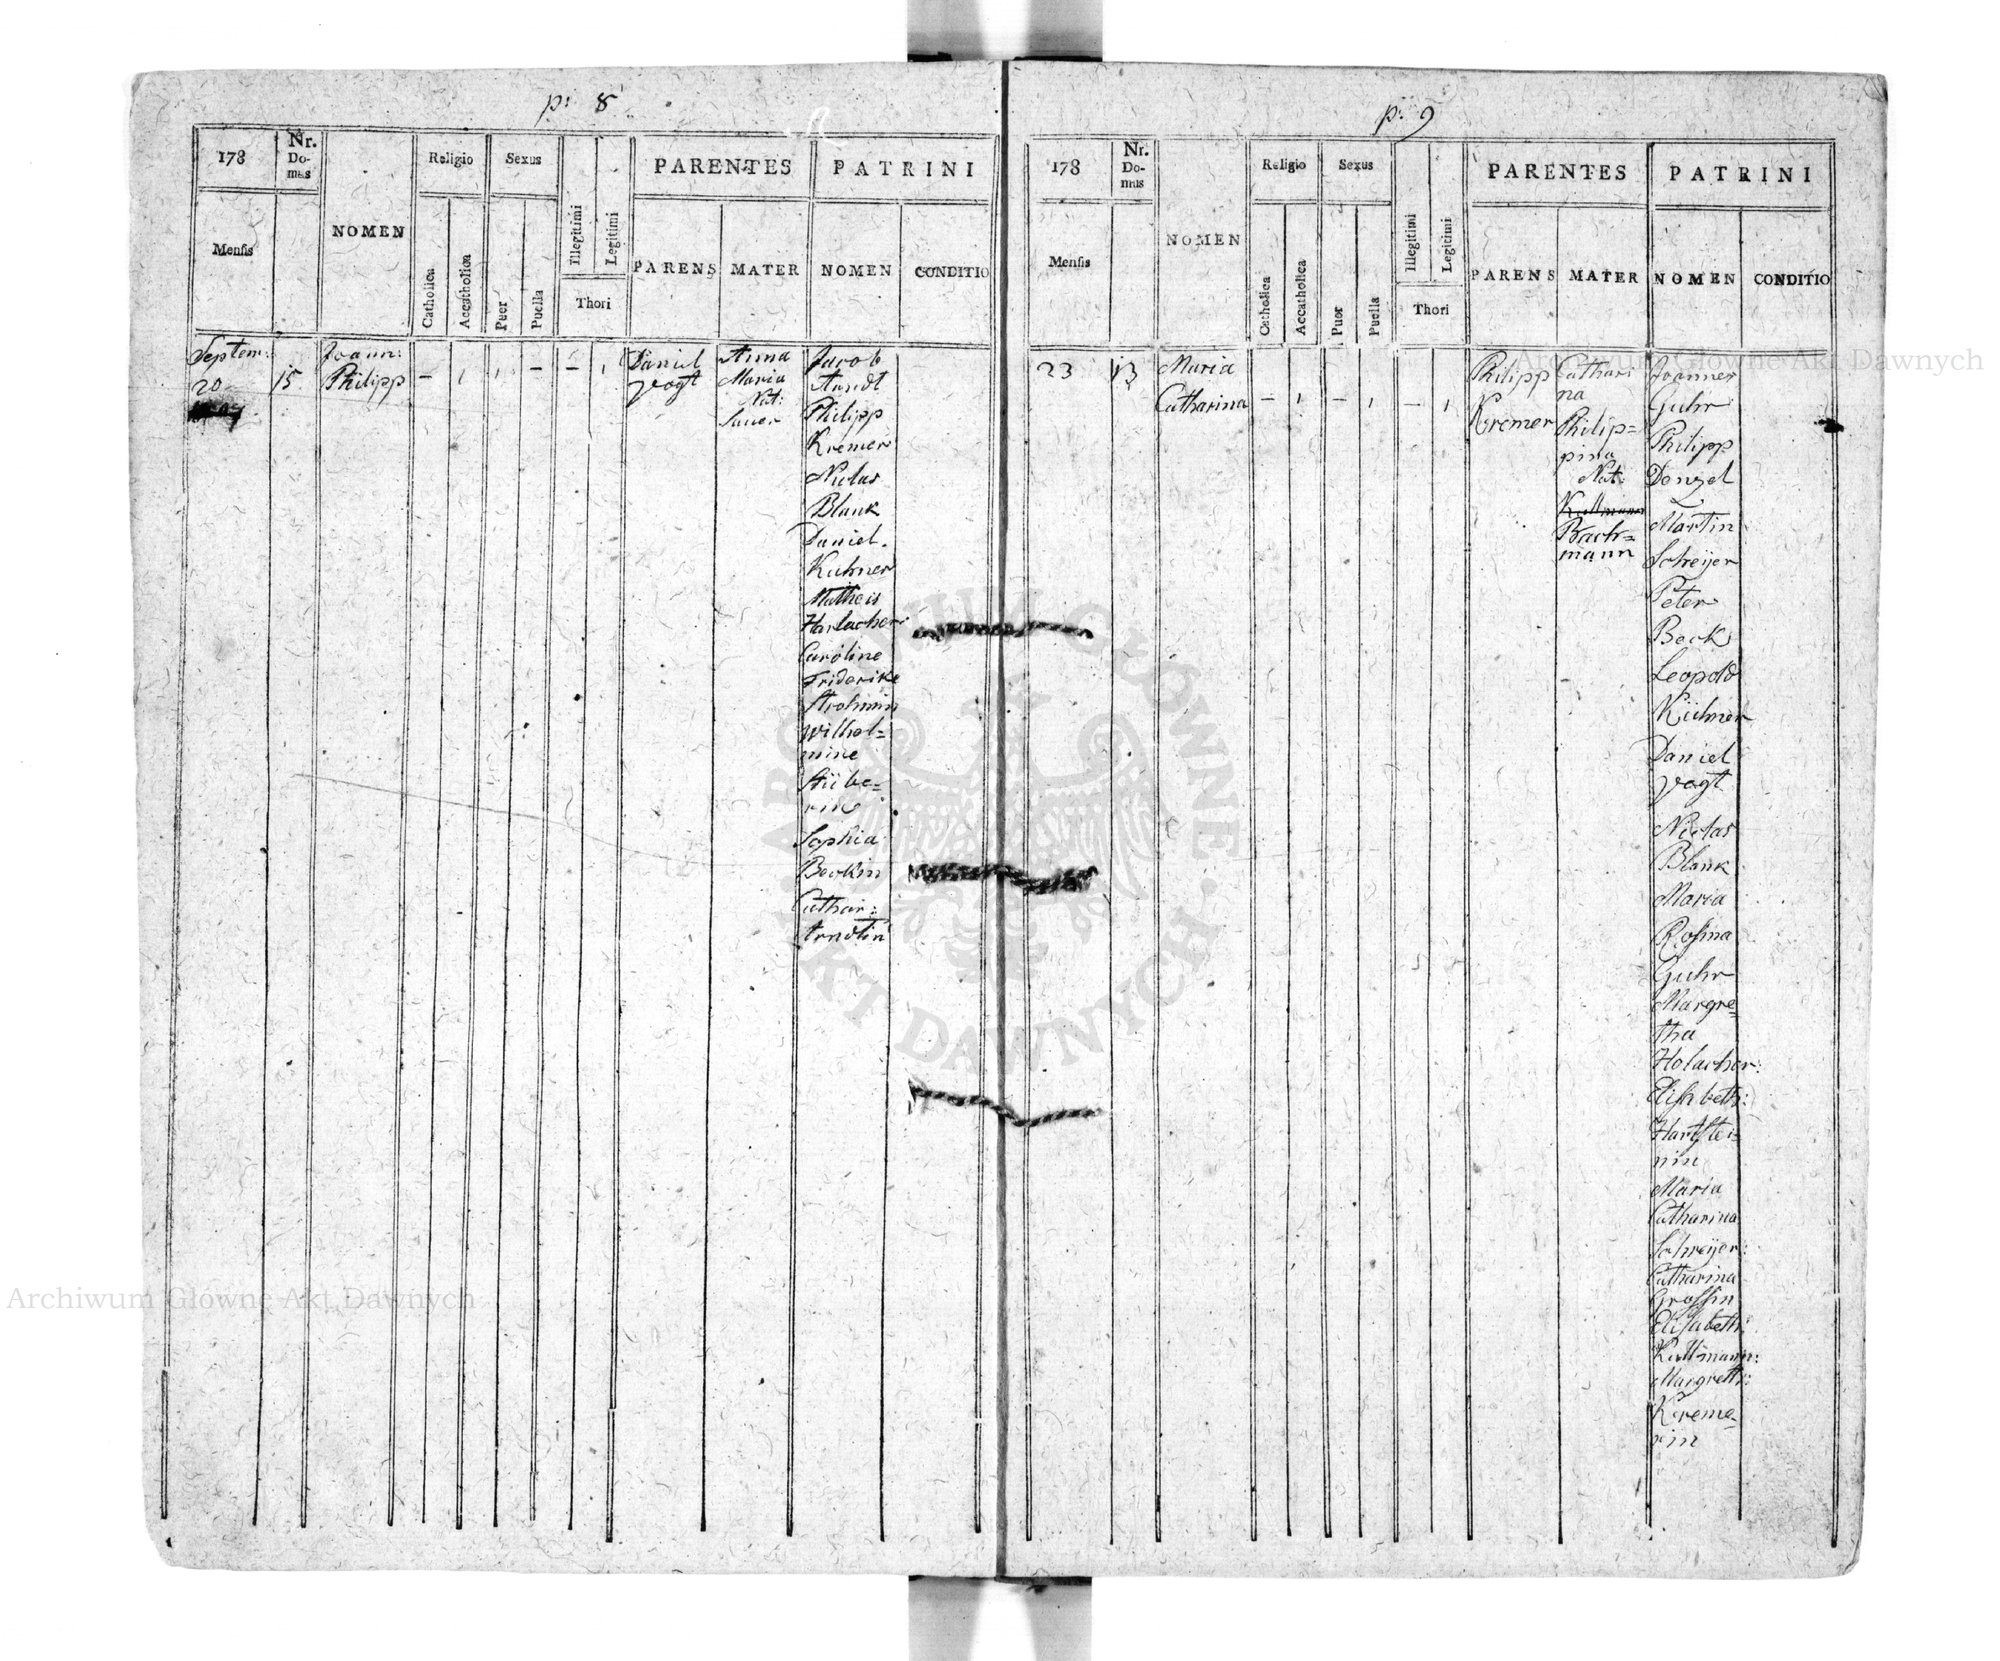 p: 8
178
Nr. Do- mus
NOMEN
Religio
Sexus
Illegitimi
Legitimi
PARENTES
PATRINI
Mensis
Catholica
Accatholica
Puer
Puella
Thori
PARENS
MATER
NOMEN
CONDITIO
Septem:
20
15
Joann:
Philipp
–
1
1
–
–
1
Daniel
Vogt
Anna
Maria
Nat:
Sauer
Jacob
Arndt
Philipp
Kremer
Niclas
Blank
Daniel.
Kuhner
Matheis
Harlacher
Caroline
Friderike
Wilhel=
mine
Stübe=
rin
Sophia
Beckin
Cathar:
Arndtin
p: 9
178
Nr. Do- mus
NOMEN
Religio
Sexus
Illegitimi
Legitimi
PARENTES
PATRINI
Mensis
Catholica
Accatholica
Puer
Puella
Thori
PARENS
MATER
NOMEN
CONDITIO
23
13
Maria
Catharina
–
1
–
1
–
1
Philipp
Kremer
Cathari
na
Philip=
pina
Nat:
Kullmann
Bach=
mann
Joannes
Guhr
Philipp
Denzel
Martin
Schreijer
Peter
Beck
Leopold
Kühner
Daniel
Vogt
Niclas
Blank
Maria
Rosina
Guhr
Margre=
tha
Holacher:
Elisabeth:
Hartstei=
nin
Maria
Catharina
Schreijer:
Catharina
Grossin
Elisabeth:
Kullmann:
Margreth:
Kreme=
rin
Archiwum Główne Akt Dawnych
Archiwum Główne Akt Dawnych
ARCHIWUM GŁÓWNE AKT DAWNYCH